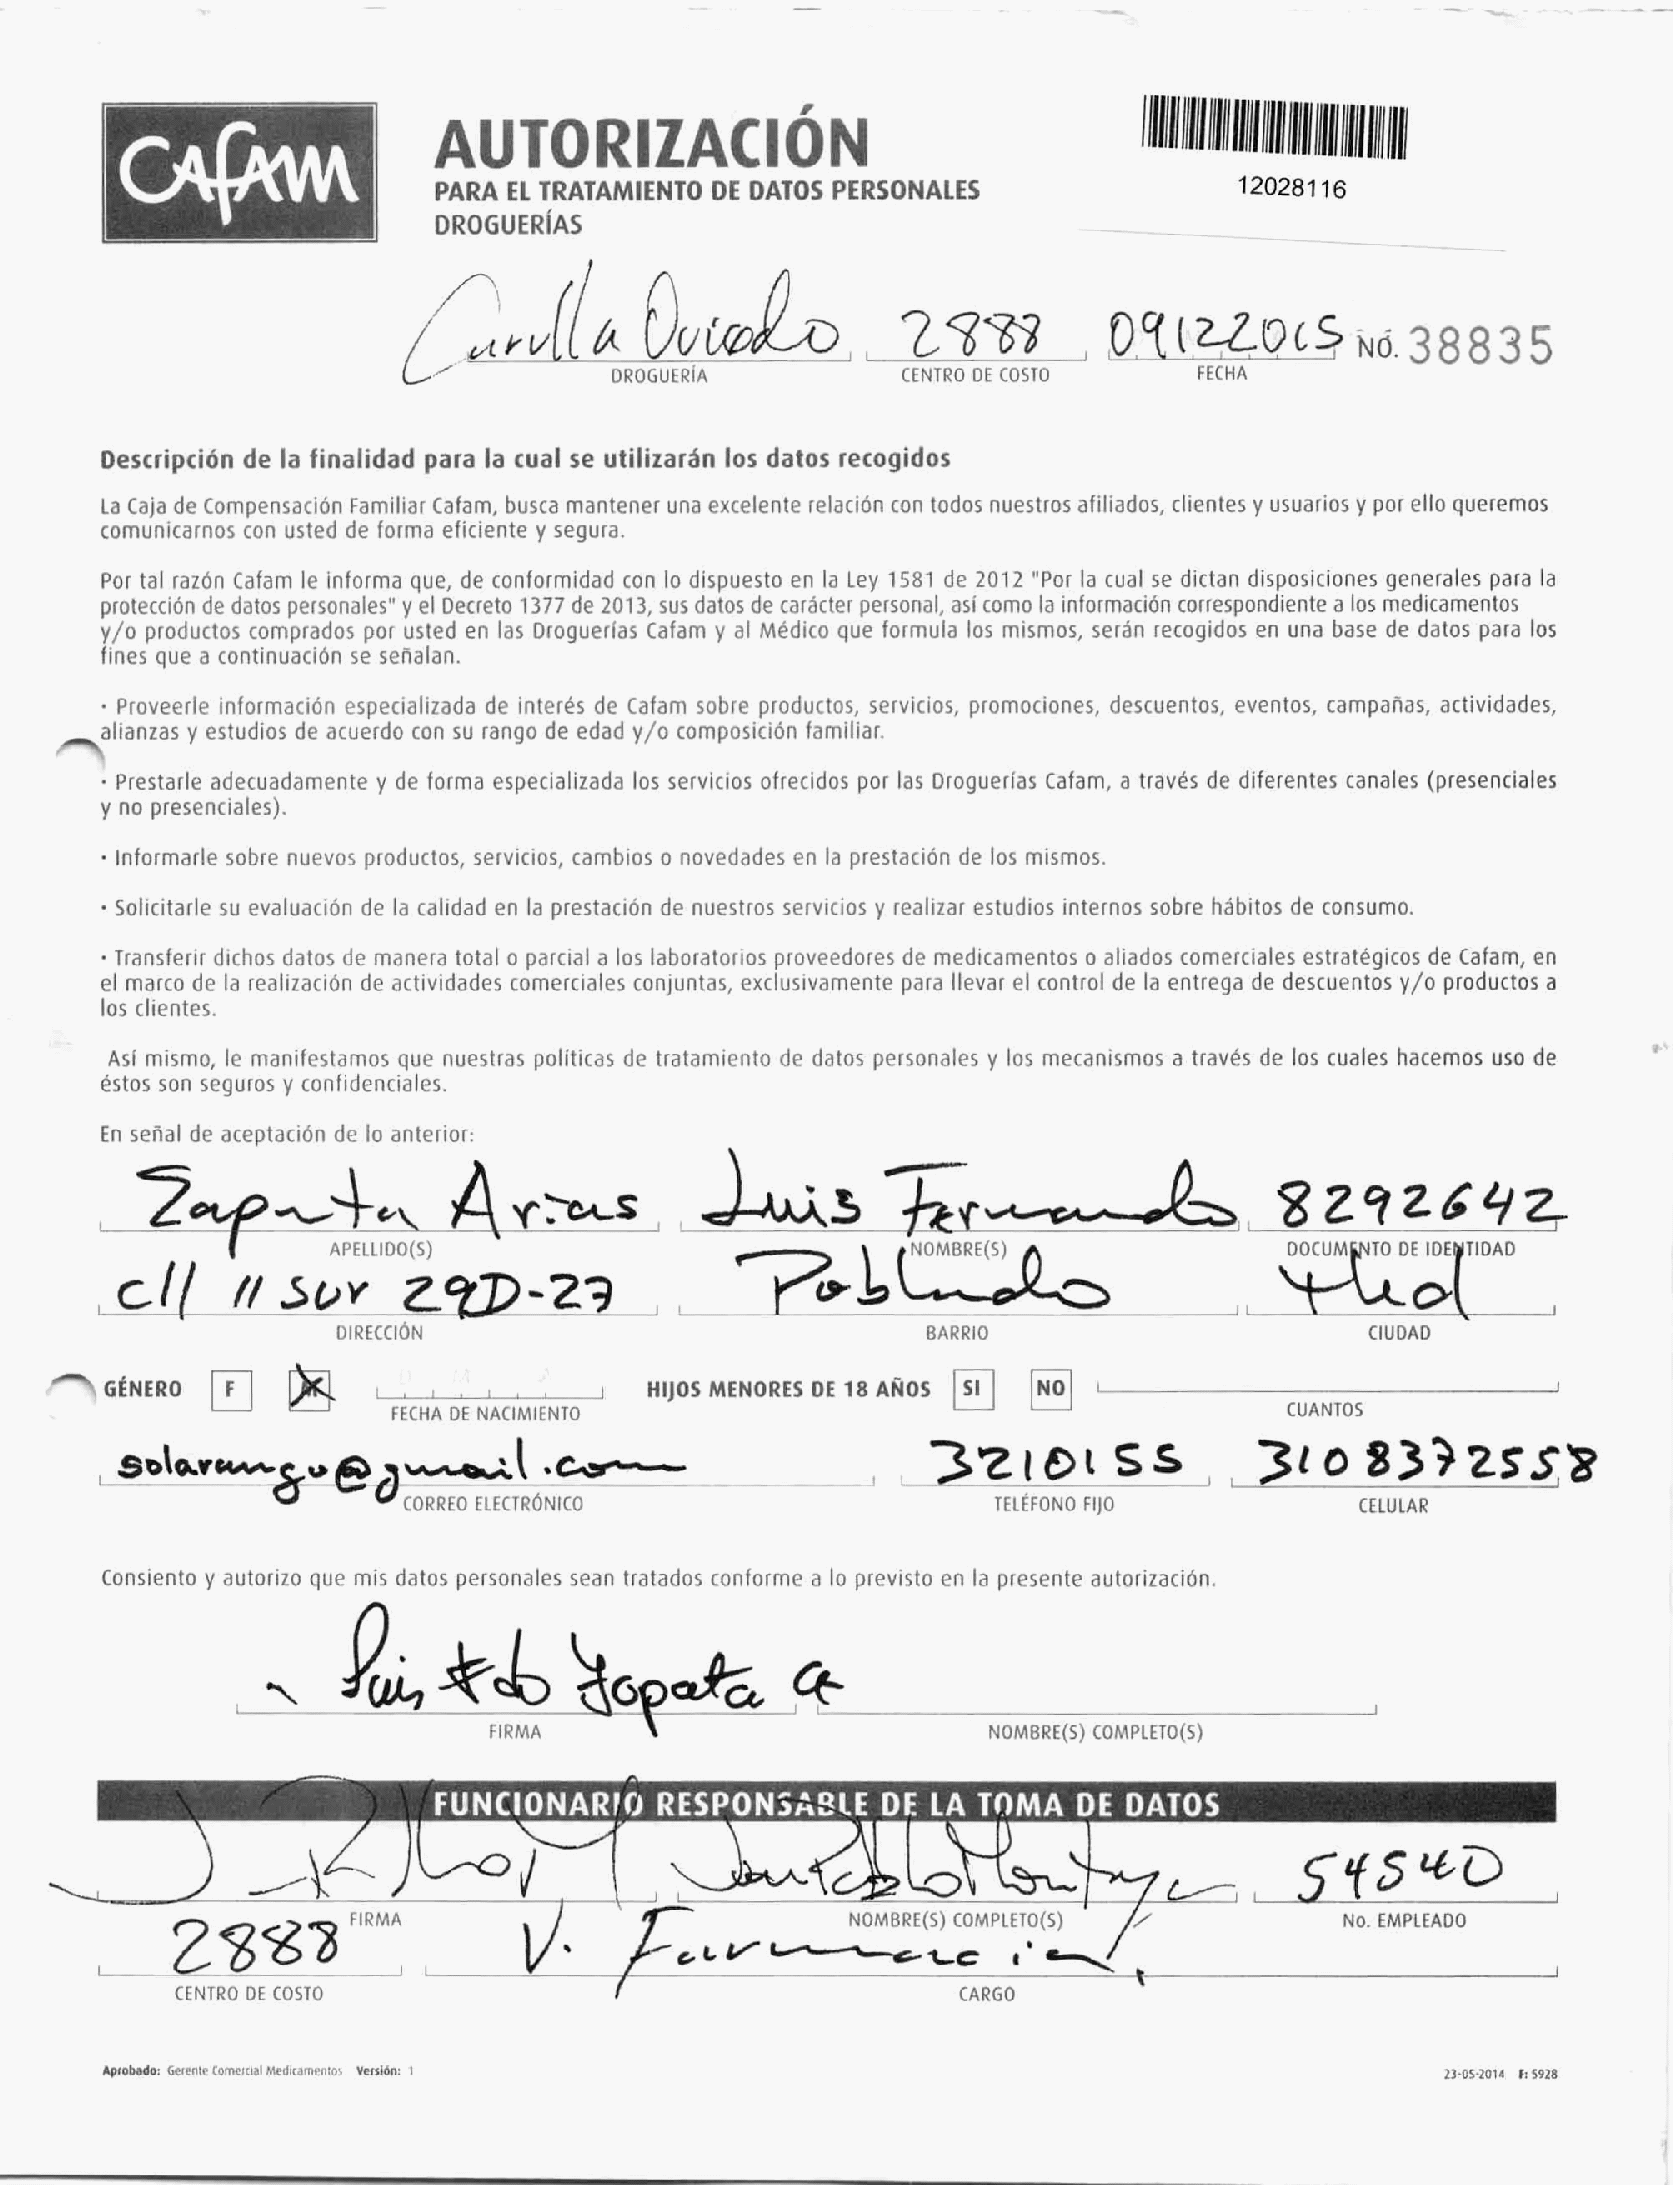 CAFAM
AUTORIZACIÓN
PARA EL TRATAMIENTO DE DATOS PERSONALES
DROGUERÍAS
12028116
Carulla Oviedo 2888 09122015 NO. 38835
DROGUERÍA CENTRO DE COSTO FECHA
Descripción de la finalidad para la cual se utilizarán los datos recogidos
La Caja de Compensación Familiar Cafam, busca mantener una excelente relación con todos nuestros afiliados, clientes y usuarios y por ello queremos
comunicarnos con usted de forma eficiente y segura.
Por tal razón Cafam le informa que, de conformidad con lo dispuesto en la Ley 1581 de 2012 "Por la cual se dictan disposiciones generales para la
protección de datos personales" y el Decreto 1377 de 2013, sus datos de carácter personal, así como la información correspondiente a los medicamentos
y/o productos comprados por usted en las Droguerías Cafam y al Médico que formula los mismos, serán recogidos en una base de datos para los
fines que a continuación se señalan.
· Proveerle información especializada de interés de Cafam sobre productos, servicios, promociones, descuentos, eventos, campañas, actividades,
alianzas y estudios de acuerdo con su rango de edad y/o composición familiar.
· Prestarle adecuadamente y de forma especializada los servicios ofrecidos por las Droguerías Cafam, a través de diferentes canales (presenciales
y no presenciales).
· Informarle sobre nuevos productos, servicios, cambios o novedades en la prestación de los mismos.
· Solicitarle su evaluación de la calidad en la prestación de nuestros servicios y realizar estudios internos sobre hábitos de consumo.
· Transferir dichos datos de manera total o parcial a los laboratorios proveedores de medicamentos o aliados comerciales estratégicos de Cafam, en
el marco de la realización de actividades comerciales conjuntas, exclusivamente para llevar el control de la entrega de descuentos y/o productos a
los clientes.
Así mismo, le manifestamos que nuestras políticas de tratamiento de datos personales y los mecanismos a través de los cuales hacemos uso de
éstos son seguros y confidenciales.
En señal de aceptación de lo anterior:
Zapata Arias Luis Fernando 8292642
APELLIDO(S) NOMBRE(S) DOCUMENTO DE IDENTIDAD
cll 11 sur 29D-27 Poblado Med
DIRECCIÓN BARRIO CIUDAD
GÉNERO F M HIJOS MENORES DE 18 AÑOS SI NO
FECHA DE NACIMIENTO CUANTOS
solarango@gmail.com 3210155 3108372558
CORREO ELECTRÓNICO TELÉFONO FIJO CELULAR
Consiento y autorizo que mis datos personales sean tratados conforme a lo previsto en la presente autorización.
Luis Fdo Zapata A
FIRMA NOMBRE(S) COMPLETO(S)
FUNCIONARIO RESPONSABLE DE LA TOMA DE DATOS
Juan Pablo Montoya 54540
FIRMA NOMBRE(S) COMPLETO(S) No. EMPLEADO
2888 V. Farmacia
CENTRO DE COSTO CARGO
Aprobado: Gerente Comercial Medicamentos Versión: 1 23-05-2014 F: 5928